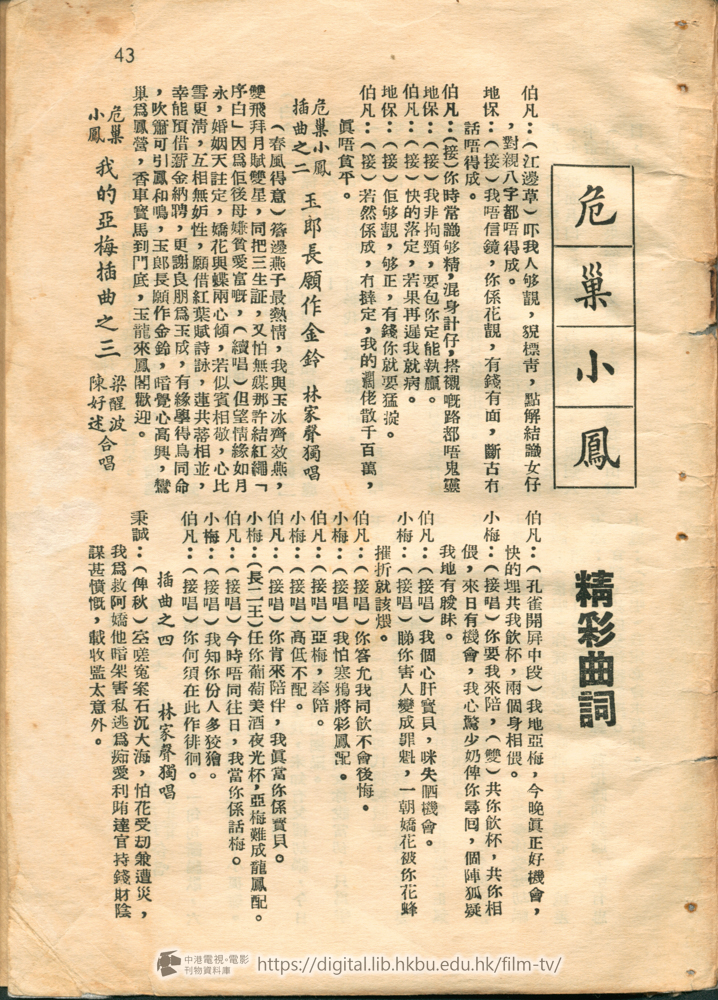 43
危巢小鳳
精彩曲詞
伯凡：（江邊草）吓我人够靚，貌標靑，點解結識女仔
，對親八字都唔得成。
地保：（接）我唔信鏡，你係花靚，有錢有面，斷古冇
話唔得成。
伯凡：（接）你時常識够精，混身計仔，搭襯嘅路都唔鬼靈
地保：（接）我非拘頸，要包你定能執贏。
伯凡：（接）快的落定，若果再遲我就病。
地保：（接）佢够靚，够正，有錢你就要猛掟。
伯凡：（接）若然係成，冇擰定，我的薦佬散千百萬，
眞唔貪平。
危巢小鳳
插曲之二　玉郎長願作金鈴　林家聲獨唱
（春風得意）簷邊燕子最熱情，我與玉冰齊效燕，
雙飛拜月賦雙星，同把三生証，又怕無媒那許結紅繩「
序白」因爲佢後母嫌貧愛富嘅，（續唱）但望情緣如月
永，婚姻天註定，嬌花與蝶兩心傾，若似賓相敬，心比
雪更淸，互相無妬性，願借紅葉賦詩詠，蓮共蒂相並，
幸能預借薪金納聘，更謝良朋爲玉成，有緣學得鳥同命
，吹簫可引鳳和鳴，玉郎長願作金鈴，暗覺心高興，鸞
巢爲鳳營，香車寶馬到門底，玉龍來鳳閣歡迎。
危巢小鳳　我的亞梅插曲之三　梁醒波 陳好逑合唱
伯凡：（孔雀開屏中段）我地亞梅，今晚眞正好機會，
快的埋共我飲杯，兩個身相偎。
小梅：（接唱）你要我來陪，（雙）共你飲杯，共你相
偎，來日有機會，我心驚少奶俾你尋囘，個陣狐疑
我地有曖昧。
伯凡：（接唱）我個心肝寳貝，咪失晒機會。
小梅：（接唱）睇你害人變成罪魁，一朝嬌花被你花蜂
摧折就該煨。
伯凡：（接唱）你答允我同飲不會後悔。
小梅：（接唱）我怕寒鴉將彩鳳配。
伯凡：（接唱）亞梅，奉陪。
小梅：（接唱）高低不配。
伯凡：（接唱）你肯來陪伴，我眞當你係寳貝。
小梅：（長二王）任你葡萄美酒夜光杯，亞梅難成龍鳳配。
伯凡：（接唱）今時唔同往日，我當你係話梅。
小梅：（接唱）我知你份人多狡獪。
伯凡：（接唱）你何須在此作徘徊。
插曲之四　林家聲獨唱
秉誠：（俾秋）空嗟寃案石沉大海，怕花受刧兼遭災，
我爲救阿嬌他暗架害私逃爲痴愛利賄達官持錢財陰
謀甚憤慨，載收監太意外。
中港電視·電影
刊物資料庫
https://digital.lib.hkbu.edu.hk/film-tv/